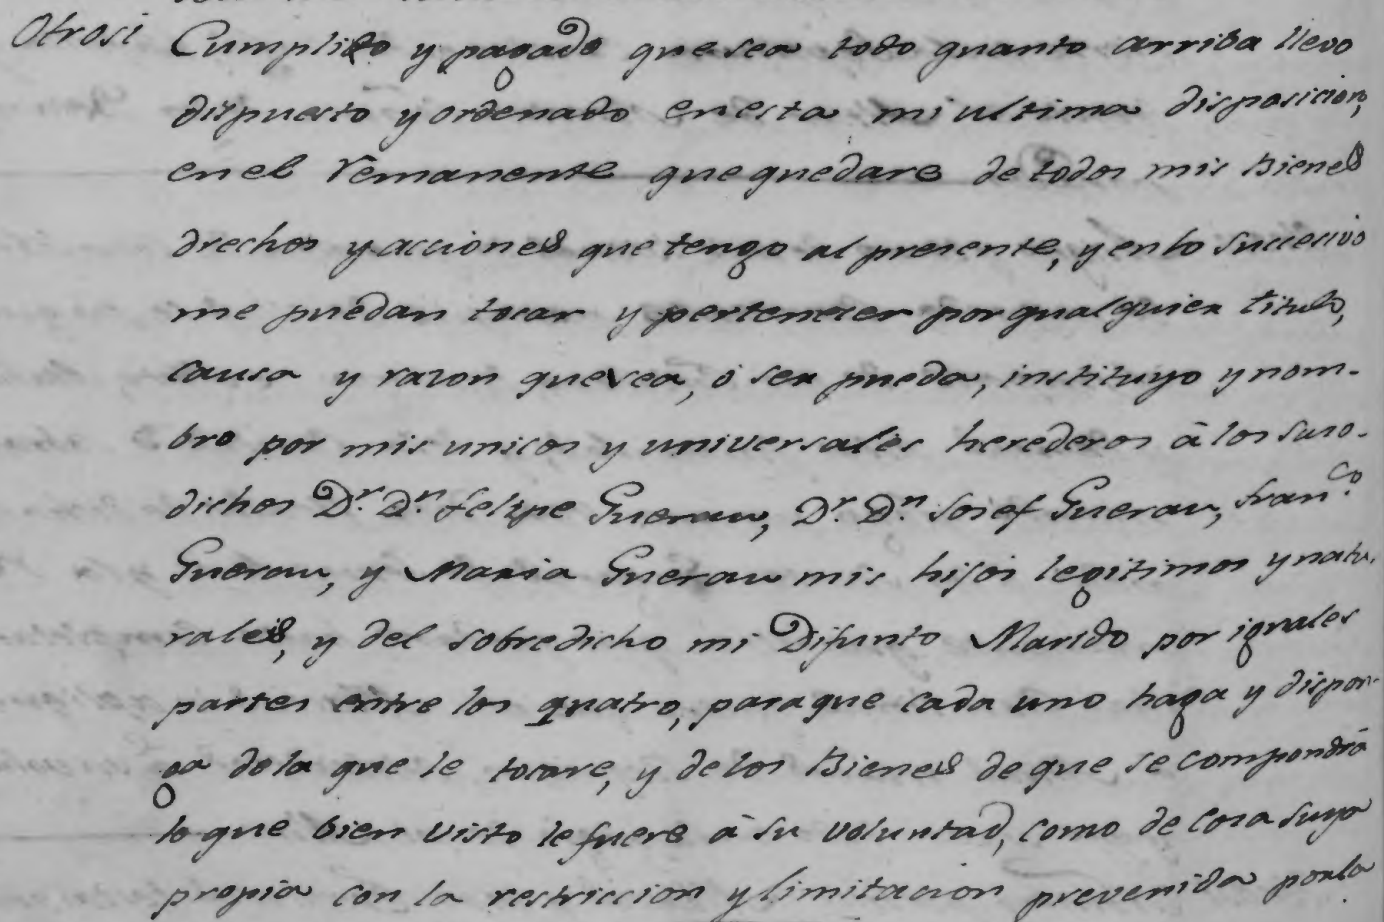 Otrosi Cumplido y pagado que sea todo quanto arriba llevo
dispuesto y ordenado en esta mi ultima disposicion,
en el remanente que quedare de todos mis Bienes
drechos y acciones que tengo al presente, y en lo successivo
me puedan tocar y pertenecer por qualquier titulo,
causa y razon que sea, ó ser pueda, instituyo y nom-
bro por mis unicos y universales herederos à los suso-
dichos Dr. Dn. Felipe Guerau, Dr. Dn. Josef Guerau, Franco.
Guerau, y Maria Guerau mis hijos legitimos y natu-
rales, y del sobredicho mi Difunto Marido por iguales
partes entre los quatro, para que cada uno haga y dispon-
ga de la que le tocare, y de los Bienes de que se compondrá
lo que bien visto le fuere à su voluntad, como de cosa suya
propia con la restriccion y limitacion prevenida por la